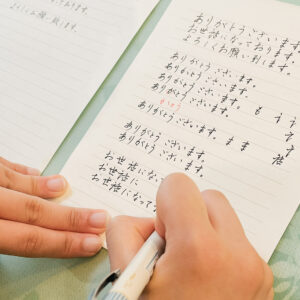 ありがとうございます。
お世話になっております。
よろしくお願い致します。
ありがとうございます。
ありがとうございます。
ありがとうございます。 も す
ありがとうございます。 す
がとう
ありがとうございます。 ま ま
ありがとうございます。 話
お世話にな
お世話に
お世話になって